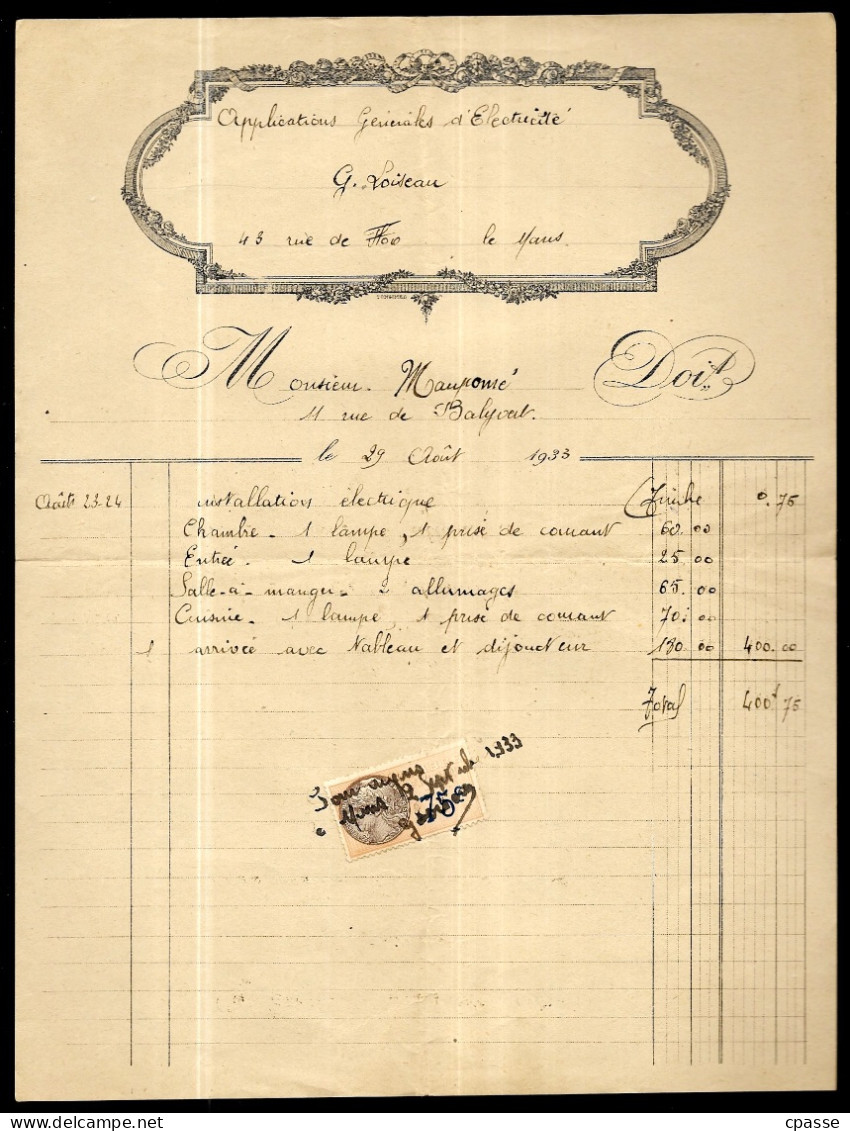 Applications Générales d'Electricité
G. Loiseau
43 rue de le Mans.
Monsieur. Doit
11 rue de
le 29 Août 1933
Août 23-24 installations électrique 0.75
Chambre - 1 lampe, 1 prise de courant 60.00
Entrée - 1 lampe 25.00
Salle-à-manger - 2 allumages 65.00
Cuisine - 1 lampe, 1 prise de courant 70.00
1 arrivée avec tableau et dijoncteur 180.00 400.00
Total 400f 75
Pour acquis
1933
75c
delcampe.net
cpasse